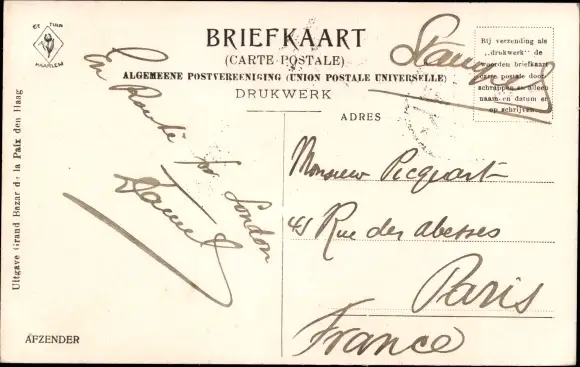 DE TUIN
HAARLEM
BRIEFKAART
(CARTE POSTALE)
ALGEMEENE POSTVEREENIGING (UNION POSTALE UNIVERSELLE)
DRUKWERK
Bij verzending als
„drukwerk" de
woorden briefkaart
carte postale door-
schrappen en alleen
naam en datum er
op schrijven.
En Route for London
ADRES
Monsieur Picquart
45 Rue des abesses
Paris
France
Uitgave Grand Bazar de la Paix den Haag
AFZENDER